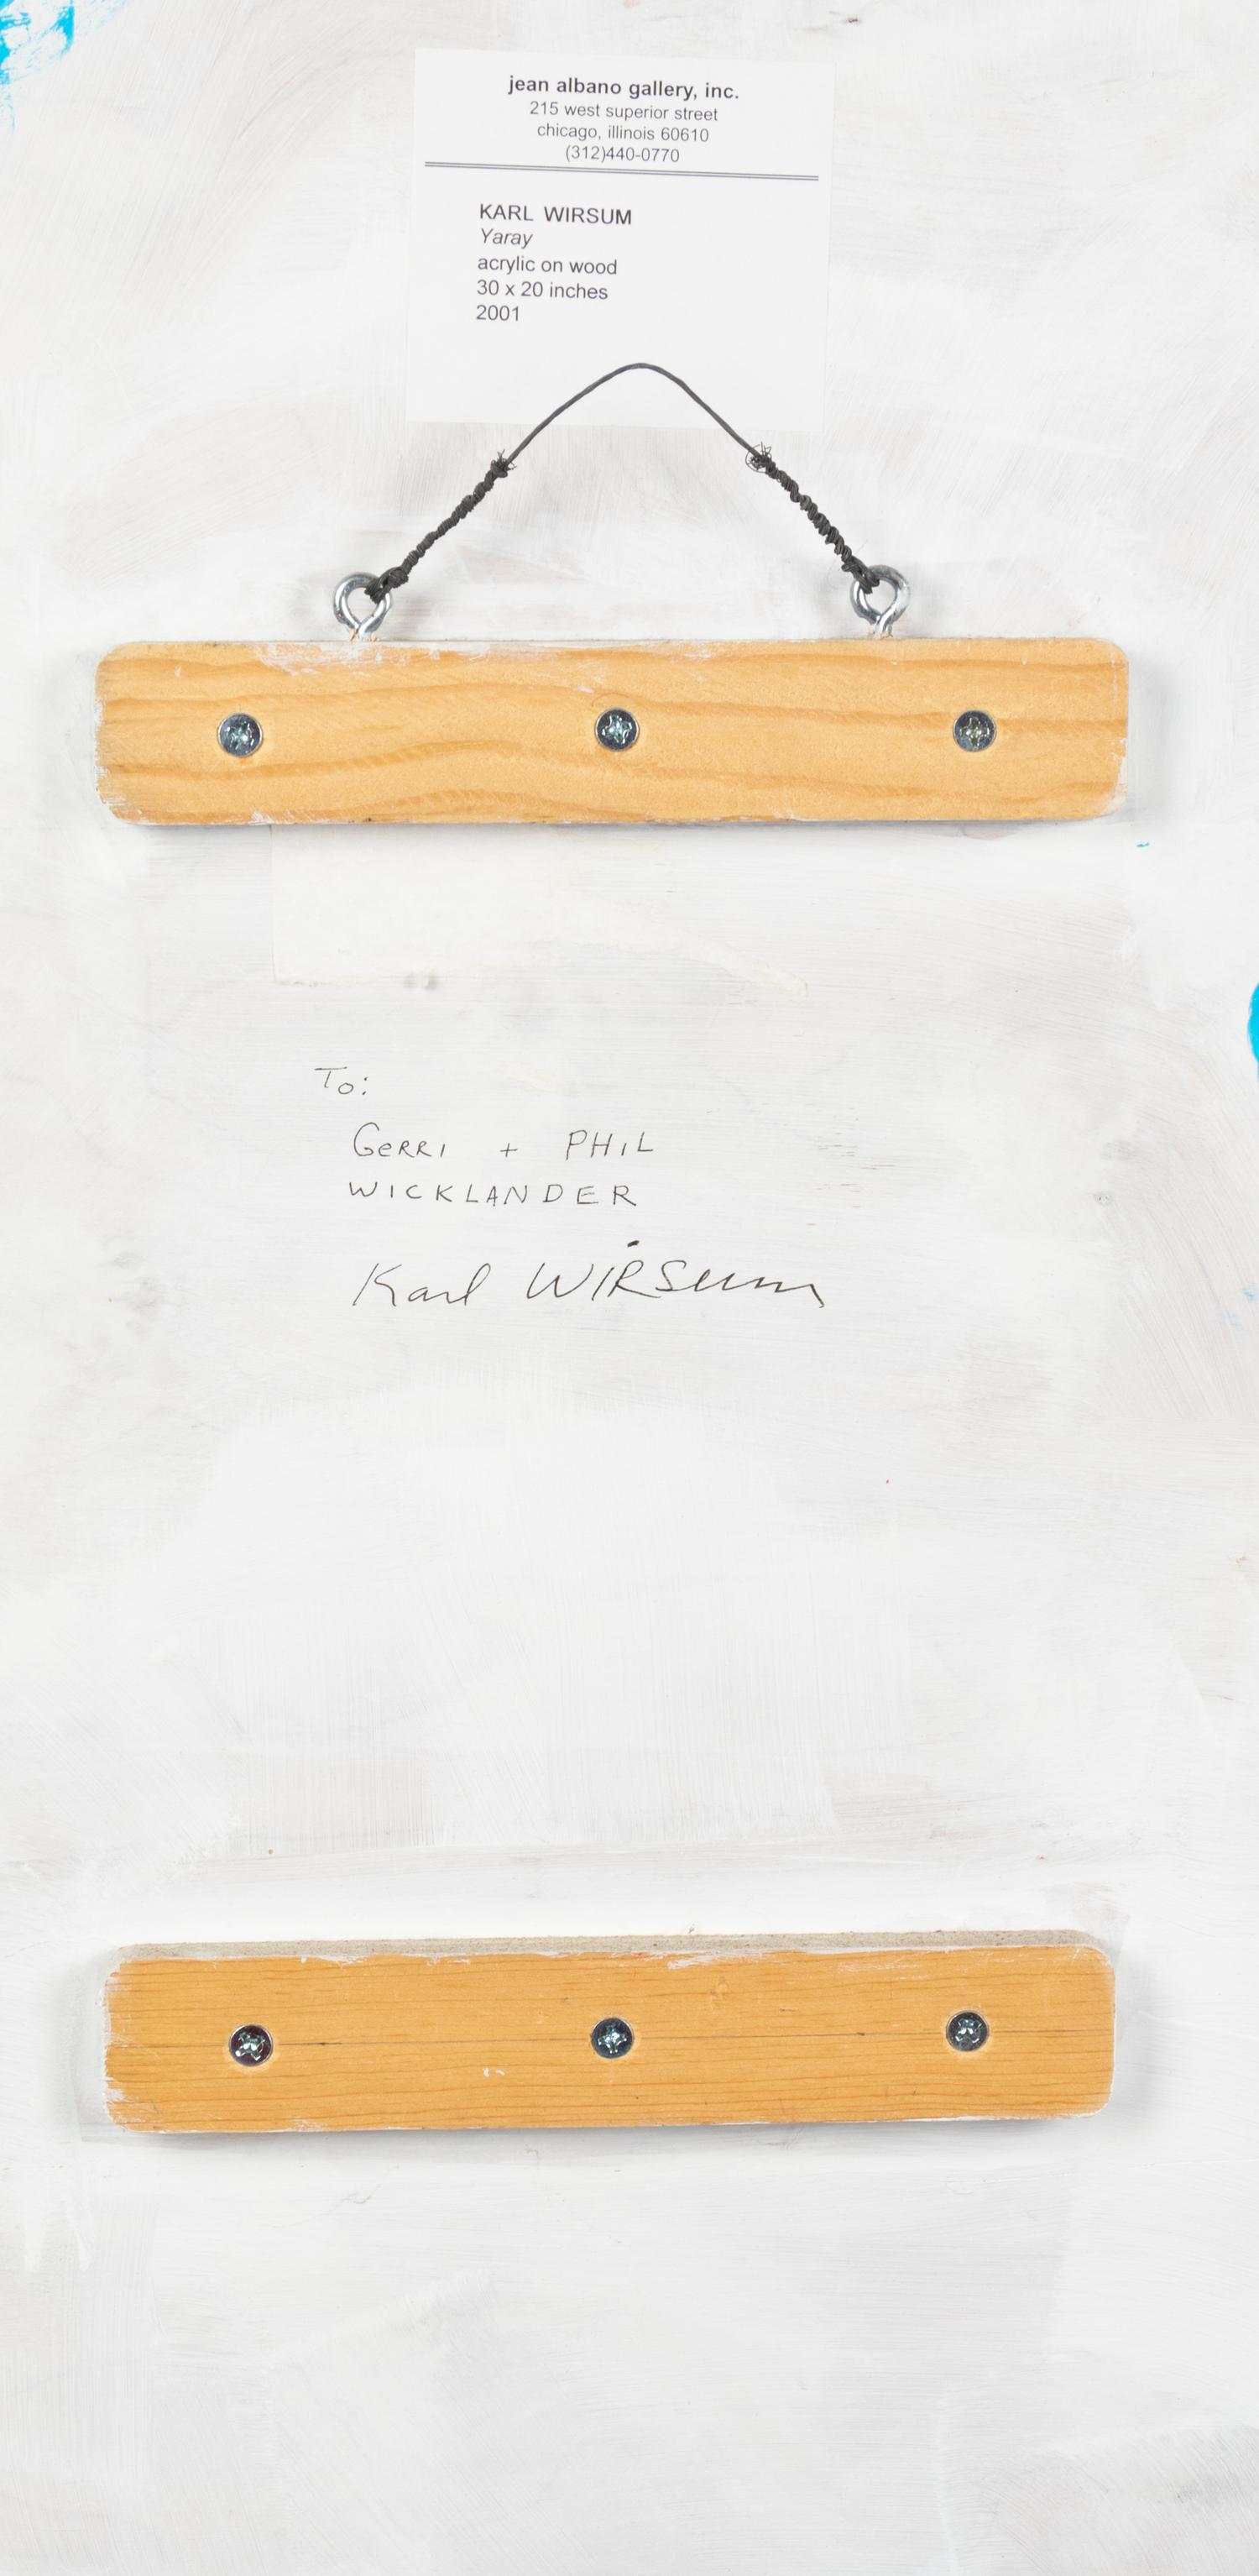 jean albano gallery, inc.
215 west superior street
chicago, illinois 60610
(312)440-0770
KARL WIRSUM
Yaray
acrylic on wood
30 x 20 inches
2001
To:
GeRRI + PHiL
WICKLANDER
Karl WIRSum